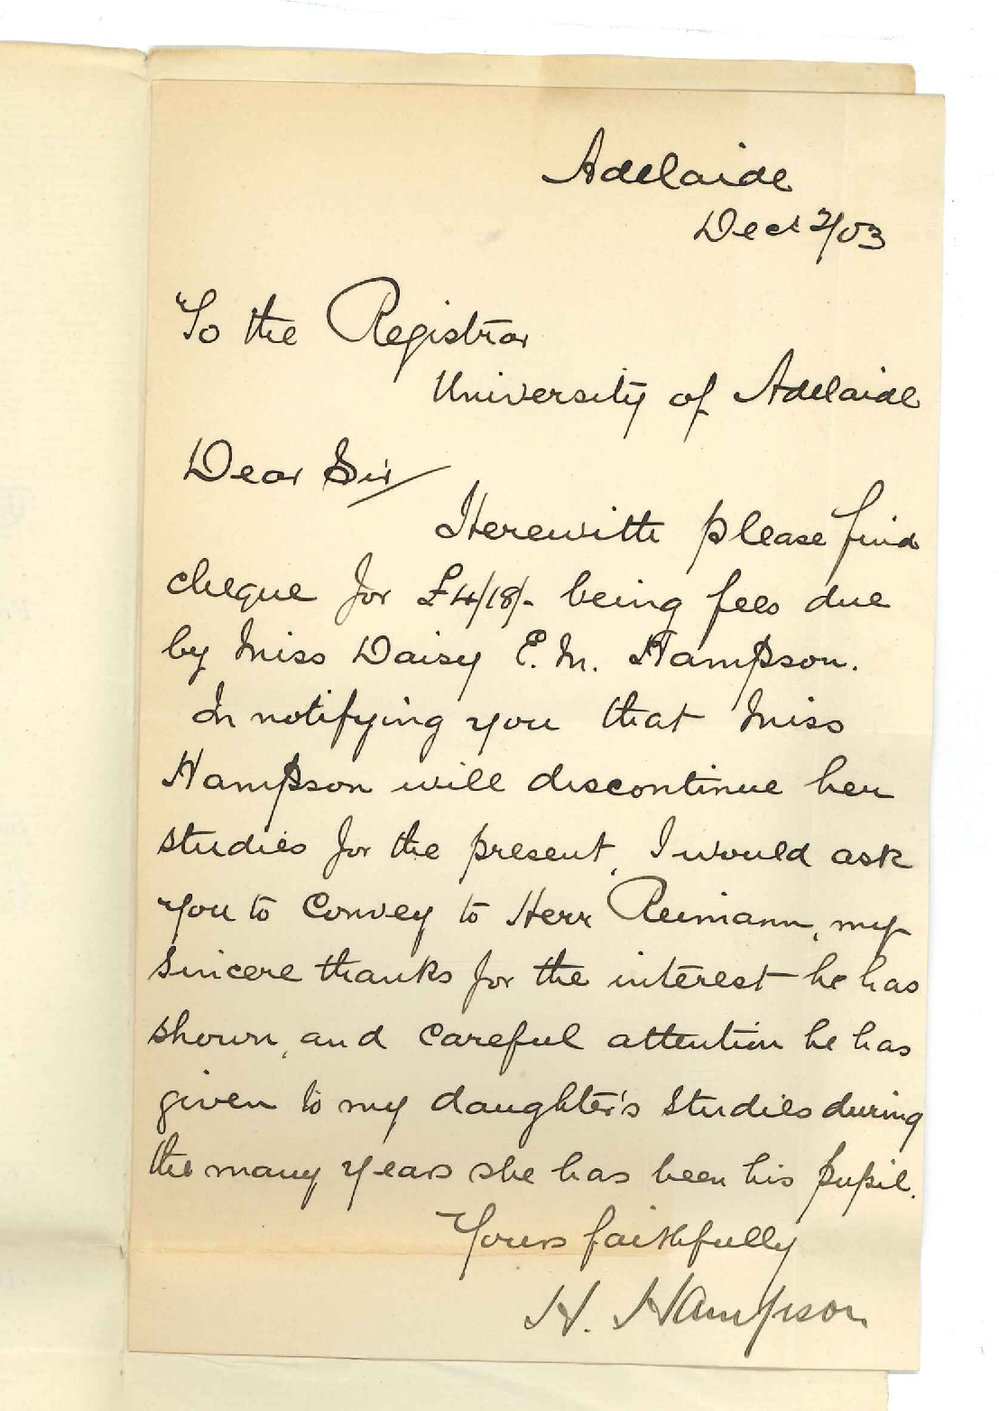 Adelaide
Dec 2/03
To the Registrar
University of Adelaide
Dear Sir
Herewith please find
cheque for £4/18/- being fees due
by Miss Daisy E. M. Hampson.
In notifying you that Miss
Hampson will discontinue her
studies for the present, I would ask
you to convey to Herr Reimann, my
sincere thanks for the interest he has
shown, and careful attention he has
given to my daughter's studies during
the many years she has been his pupil.
Yours faithfully
H. Hampson